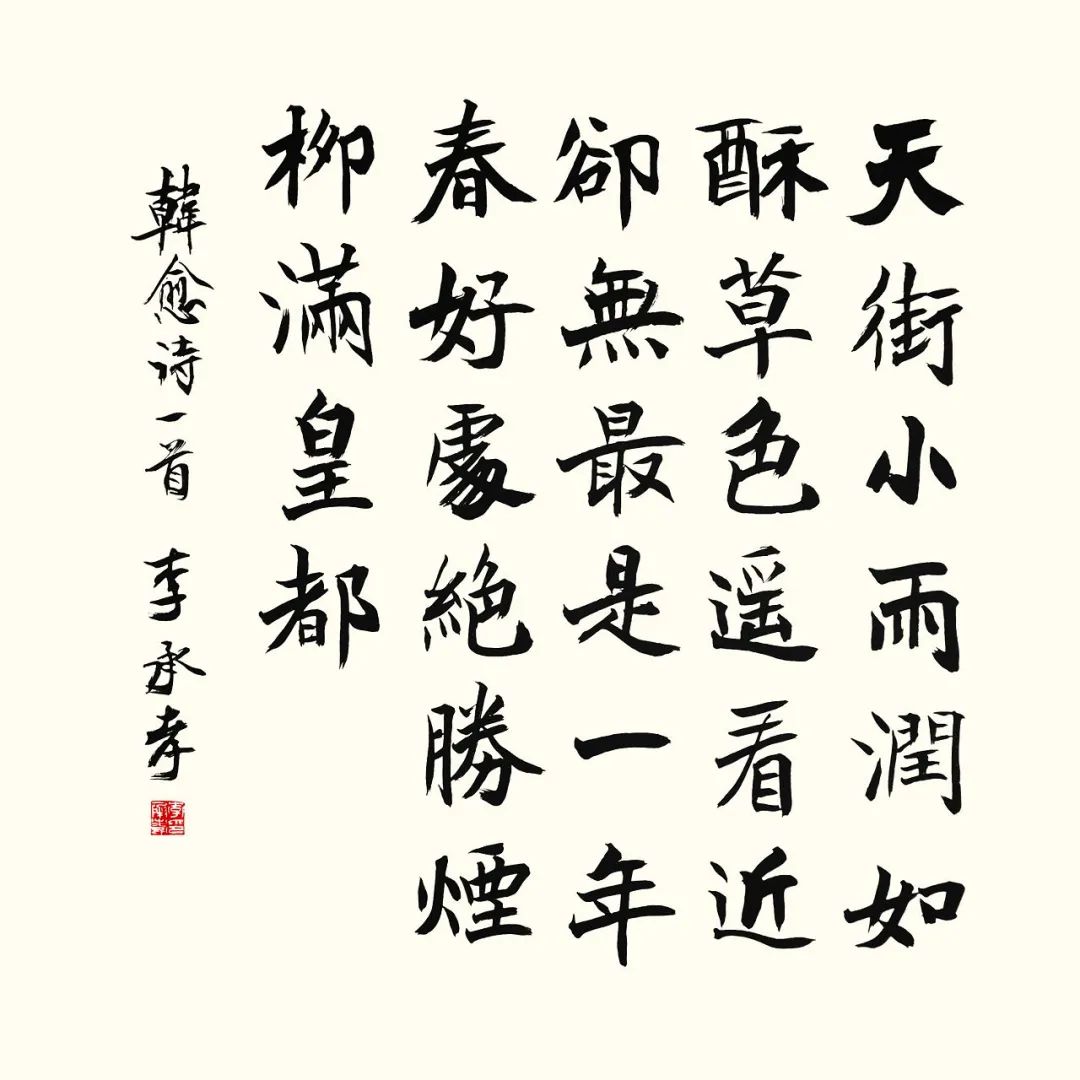 天街小雨潤如
酥草色遥看近
卻無最是一年
春好處絶勝煙
柳滿皇都
韓愈诗一首 李承孝